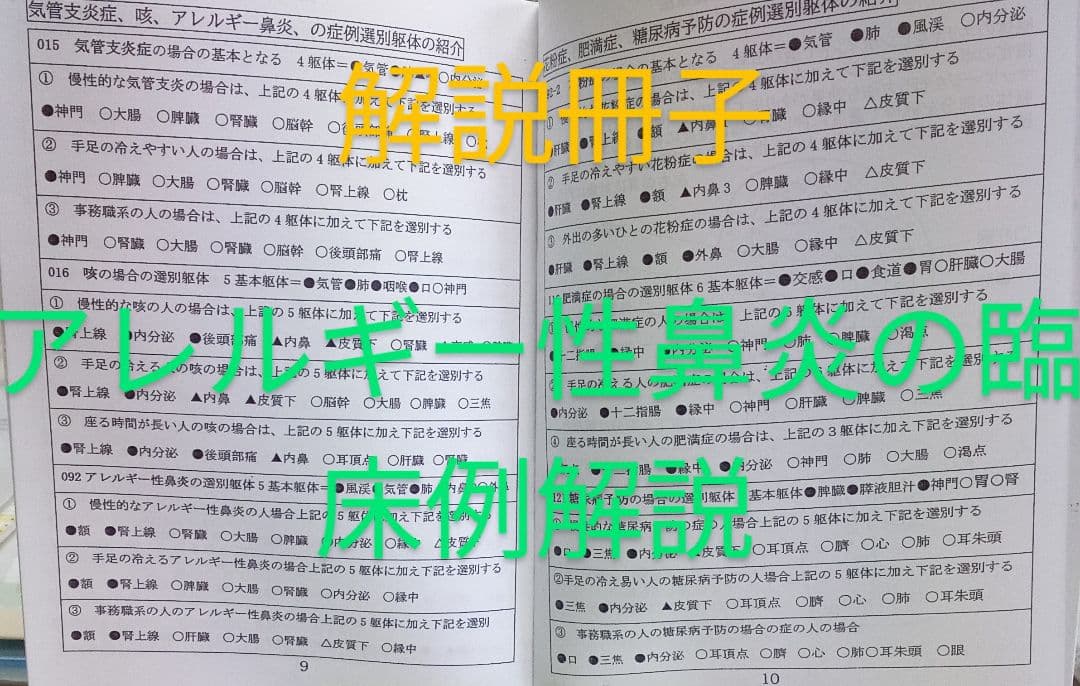 気管支炎症、咳、アレルギー鼻炎、の症例選別躯体の紹介
015 気管支炎症の場合の基本となる 4躯体＝●気管 ○内分泌
① 慢性的な気管支炎の場合は、上記の4躯体に加えて下記を選別する
●神門 ○大腸 ○脾臓 ○腎臓 ○脳幹 ○後頭部痛 ○腎上線
② 手足の冷えやすい人の場合は、上記の4躯体に加えて下記を選別する
●神門 ○脾臓 ○大腸 ○腎臓 ○脳幹 ○腎上線 ○枕
③ 事務職系の人の場合は、上記の4躯体に加えて下記を選別する
●神門 ○腎臓 ○大腸 ○腎臓 ○脳幹 ○後頭部痛 ○腎上線
016 咳の場合の選別躯体 5基本躯体＝●気管●肺●咽喉●口○神門
① 慢性的な咳の人の場合は、上記の5躯体に加えて下記を選別する
●腎上線 ●内分泌 ●後頭部痛 ▲内鼻 ▲皮質下 ○腎臓
② 手足の冷える人の咳の場合は、上記の5躯体に加えて下記を選別する
●腎上線 ●内分泌 ▲内鼻 ▲皮質下 ○脳幹 ○大腸 ○脾臓 ○三焦
③ 座る時間が長い人の咳の場合は、上記の5躯体に加えて下記を選別する
●腎上線 ●内分泌 ●後頭部痛 ▲内鼻 ○耳頂点 ○肝臓 ○腎臓
092アレルギー性鼻炎の選別躯体5基本躯体＝●風渓●気管●肺
① 慢性的なアレルギー性鼻炎の人場合上記の5躯体に加え下記を選別する
●額 ●腎上線 ○腎臓 ○大腸 ○脾臓 ○内分泌 ○縁中 △皮質下
② 手足の冷えるアレルギー性鼻炎の場合上記の5躯体に加え下記を選別する
●額 ●腎上線 ○脾臓 ○大腸 ○腎臓 ○内分泌 ○縁中
③ 事務職系の人のアレルギー性鼻炎の場合上記の5躯体に加え下記を選別
●額 ●腎上線 ○肝臓 ○大腸 ○腎臓 △皮質下 ○縁中
9
花粉症、肥満症、糖尿病予防の症例選別躯体の紹介
の場合の基本となる 4躯体＝●気管 ●肺 ●風渓 ○内分泌
花粉症の場合は、上記の4躯体に加えて下記を選別する
●肝臓 ●腎上線 ●額 ▲内鼻 ○腎臓 ○縁中 △皮質下
② 手足の冷えやすい花粉症の場合は、上記の4躯体に加えて下記を選別する
●肝臓 ●腎上線 ●額 ▲内鼻3 ○脾臓 ○縁中 △皮質下
③ 外出の多いひとの花粉症の場合は、上記の4躯体に加えて下記を選別する
●肝臓 ●腎上線 ●額 ●外鼻 ○大腸 ○縁中 △皮質下
肥満症の場合の選別躯体6基本躯体＝●交感●口●食道●胃○肝臓○大腸
肥満症の人の場合は、上記の 躯体に加えて下記を選別する
●十二指腸 ●縁中 ●内分泌 ○神門 ○肺 ○脾臓 ○渇点
手足の冷える人の肥満症の場合は、上記の6躯体に加えて下記を選別する
●内分泌 ●十二指腸 ●縁中 ○神門 ○肝臓 ○脾臓 ○三焦
④ 座る時間が長い人の肥満症の場合は、上記の3躯体に加えて下記を選別する
●縁中 ●内分泌 ○神門 ○肺 ○大腸 ○渇点
糖尿病予防の場合の選別躯体 基本躯体●脾臓●膵液胆汁●神門○胃○腎
な糖尿病予防の症の人の場合上記の5躯体に加えて下記を選別する
●口 ●三焦 ●内分泌 ▲皮質下 ○耳頂点 ○臍 ○心 ○肺 ○耳朱頭
②手足の冷え易い人の糖尿病予防の人場合上記の5躯体に加えて下記を選別する
●三焦 ●内分泌 ▲皮質下 ○耳頂点 ○臍 ○心 ○肺 ○耳朱頭
③ 事務職系の人の糖尿病予防の場合の症の人の場合
●口 ●三焦 ●内分泌 ○耳頂点 ○臍 ○心 ○肺○耳朱頭 ○眼
10
解説冊子
アレルギー性鼻炎の臨
床例解説